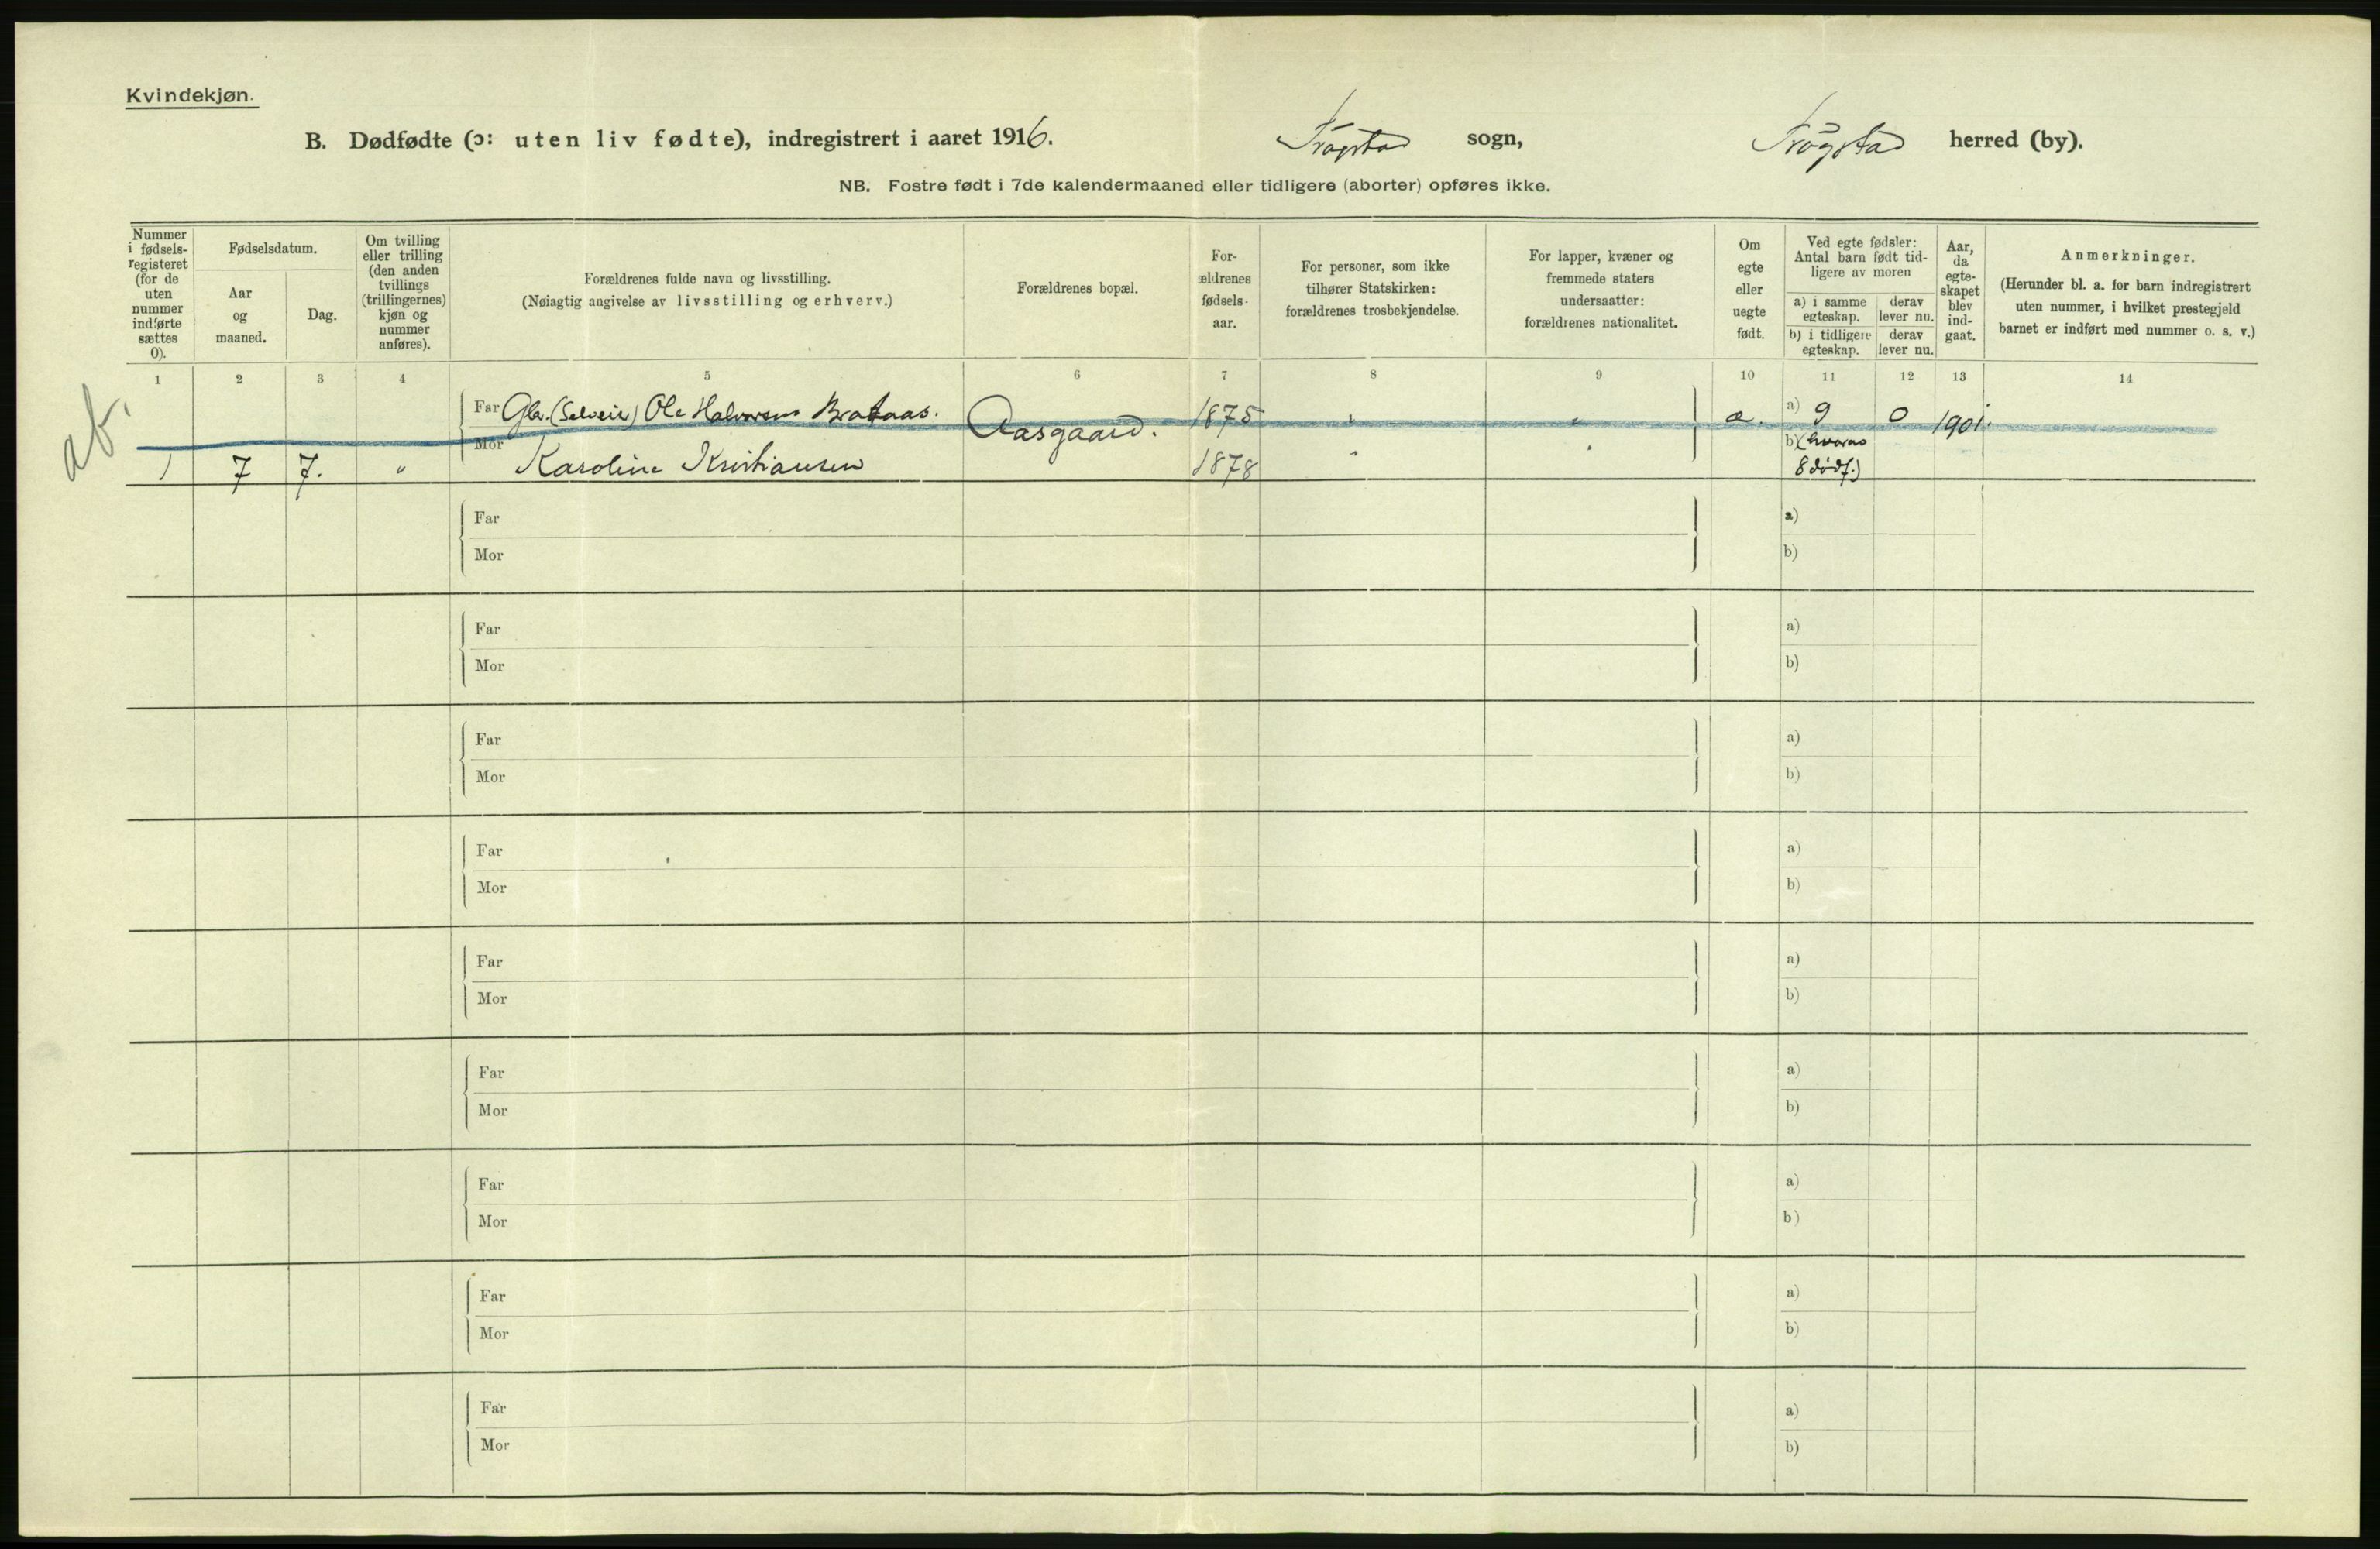 Kvindekjøn.
B. Dødfødte (ɔ: uten liv fødte), indregistrert i aaret 1916. Trøgstad sogn, Trøgstad herred (by).
NB. Fostre født i 7de kalendermaaned eller tidligere (aborter) opføres ikke.
Nummer i fødsels-registeret (for de uten nummer indførte sættes 0).
Fødselsdatum.
Aar og maaned.
Dag.
Om tvilling eller trilling (den anden tvillings (trillingernes) kjøn og nummer anføres).
Forældrenes fulde navn og livsstilling.
(Nøiagtig angivelse av livsstilling og erhverv.)
Forældrenes bopæl.
For-ældrenes fødsels-aar.
For personer, som ikke tilhører Statskirken: forældrenes trosbekjendelse.
For lapper, kvæner og fremmede staters undersaatter: forældrenes nationalitet.
Om egte eller uegte født.
Ved egte fødsler: Antal barn født tid-ligere av moren
a) i samme egteskap. derav lever nu.
b) i tidligere egteskap. derav lever nu.
Aar, da egte-skapet blev ind-gaat.
Anmerkninger.
(Herunder bl. a. for barn indregistrert uten nummer, i hvilket prestegjeld barnet er indført med nummer o. s. v.)
1 2 3 4 5 6 7 8 9 10 11 12 13 14
ab.
Far Gbr. (Selveier) Ole Halvorsen Brataas. Aasgaard. 1875 " " e. a) 9 0 1901.
1 7 7. " Mor Karoline Kristiansen 1878 " " b) (hvorav
8 dødf.)
Far a)
Mor b)
Far a)
Mor b)
Far a)
Mor b)
Far a)
Mor b)
Far a)
Mor b)
Far a)
Mor b)
Far a)
Mor b)
Far a)
Mor b)
Far a)
Mor b)